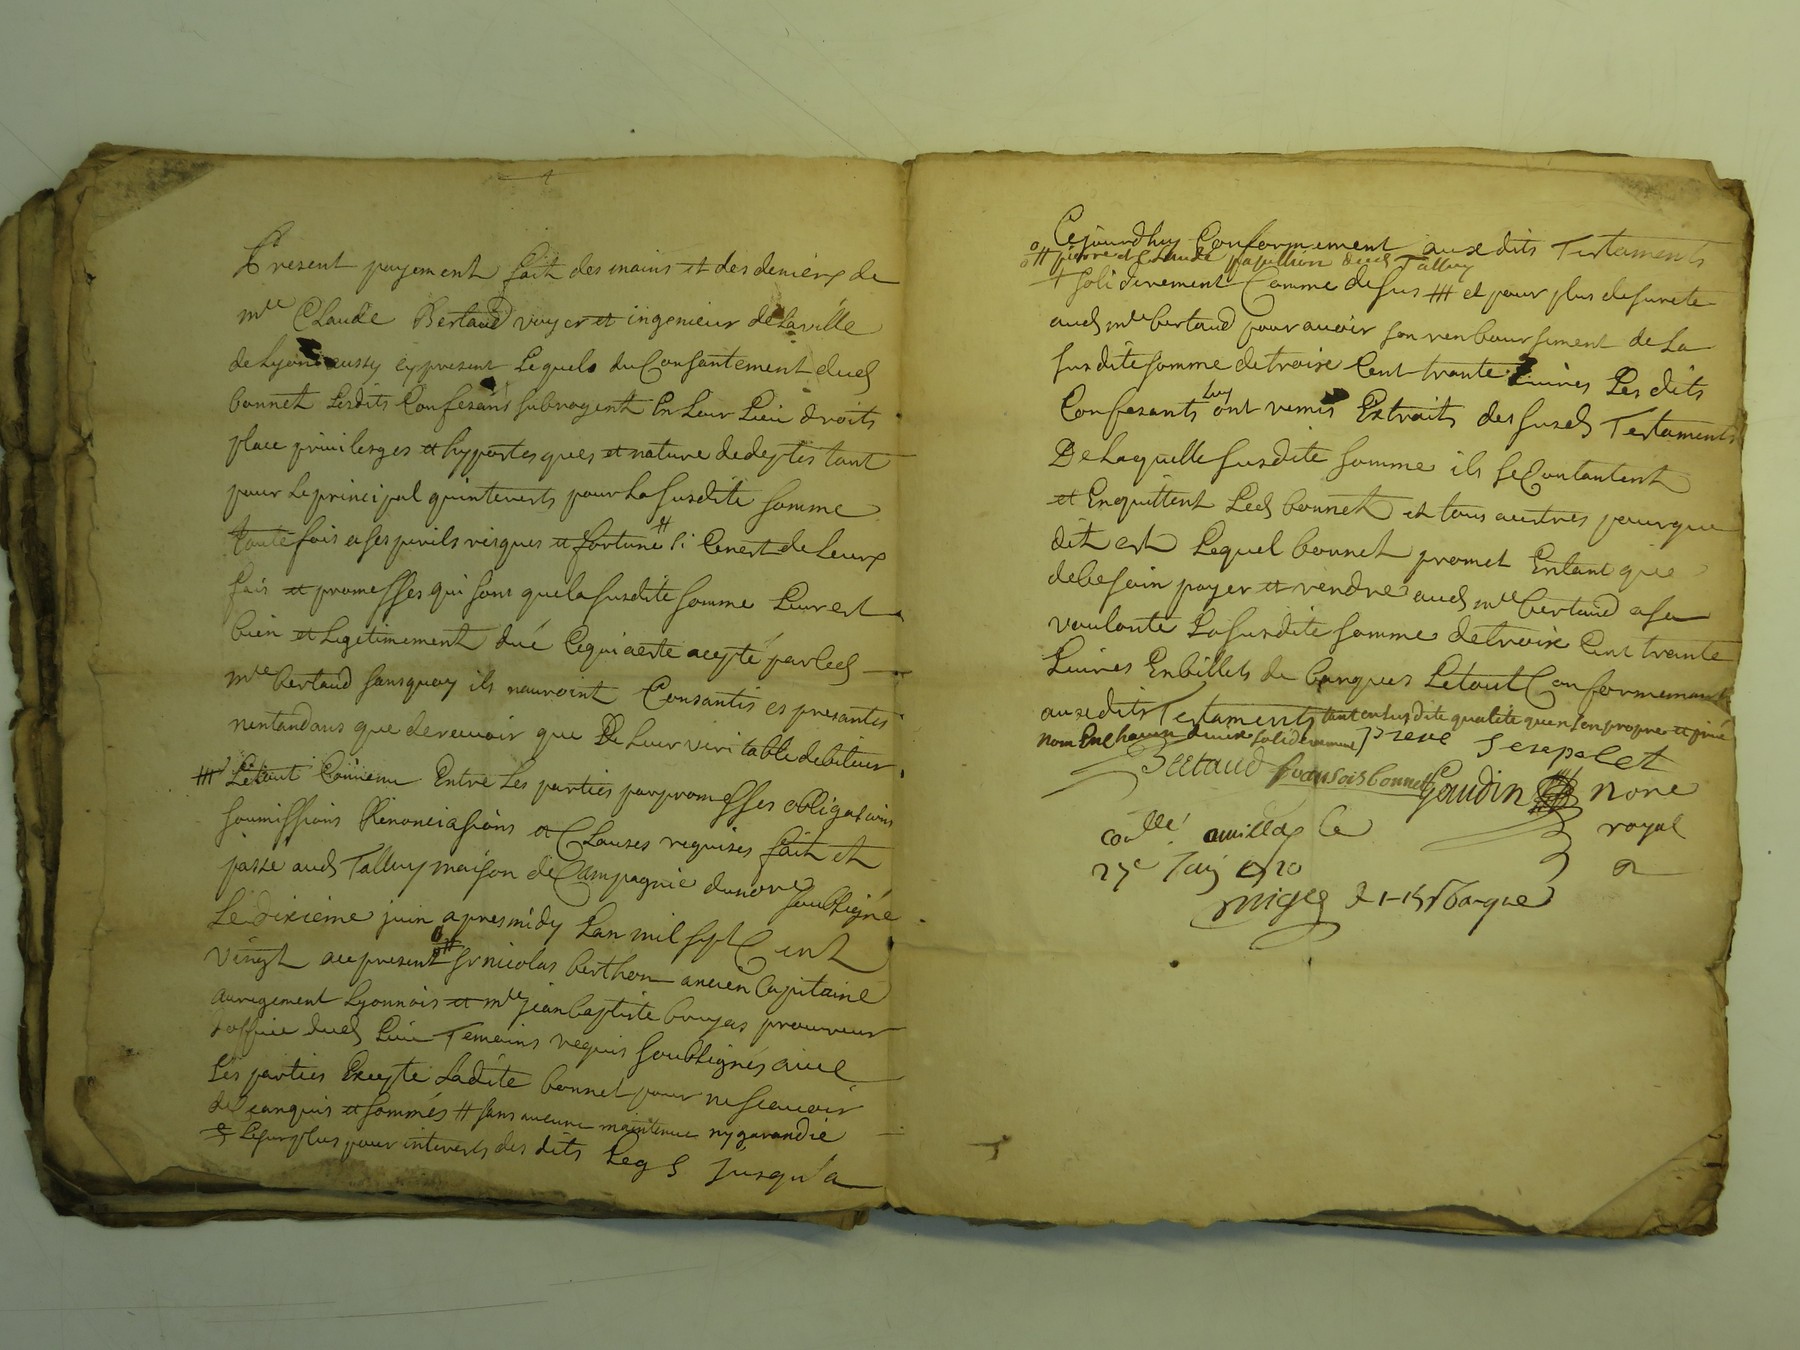 Present payement fait des mains et des deniers de
mre Claude Bertaud voyer et ingenieur de la ville
de Lyon aussy cy present Lequels du Consantement dud
bonnet Lesdits Confesans subrogent En Leur Lieu droits
place privileges et hypoteques et nature de deptes tant
pour Le principal qu'interests pour La susdite somme
toute fois a ses perils risques et fortune # si Cenest de Leurs
fais et promesses qui sont que la susdite somme Leur est
bien et Legetimement dué Ce qui a esté acepté par led
mre bertaud sans quoy ils nauroint Consantis es presantes
nentandans que de reuoir que De Leur veritable debiteur
Le tout Conuenu Entre Les parties par promesses obligations
soumissions Renonciasions et Clauses requises fait et
passé aud Talluy maison de Campagnie du nore soubsigné
Le dixieme juin apres midy Lan mil sept Cent
vingt ace present # sr nicolas berthon ancien Capitaine
au regement Lyonnois et mre jean baptiste brujas procureur
doffice dud Lieu Temoins requis soubsignés auec
Les parties Excepté Ladite bonnet pour ne scauoir
de enquis et sommés # sans aucune maintenue ny garandie
Lesurplus pour interests des dits Legs jusqu'a
Cejourdhuy Conformement aux dits Testaments
# pierre et Claude papillion dud Talluy
+ solidairement Comme desus ### et pour plus de surete
aud mre bertaud pour auoir son renboursement de La
susdite somme de troix Cent trante Liuires Les dits
Confesants luy ont remis Extraits des susd Testaments
De Laquelle susdite somme ils se Contantent
et Enquittent Led bonnet et tous autres pour que
dit est Lequel bonnet promet En tant que
de besoin payer et rendre aud mre bertaud a sa
voulonte La susdite somme de troix Cent trante
Liuires En billets de banques Le tout Conformemant
aux dits Testaments tant en susdite qualité quen son propre et priué
nom solidairement
Bertaud fransois bonnet Gaudin nore
royal
Collé